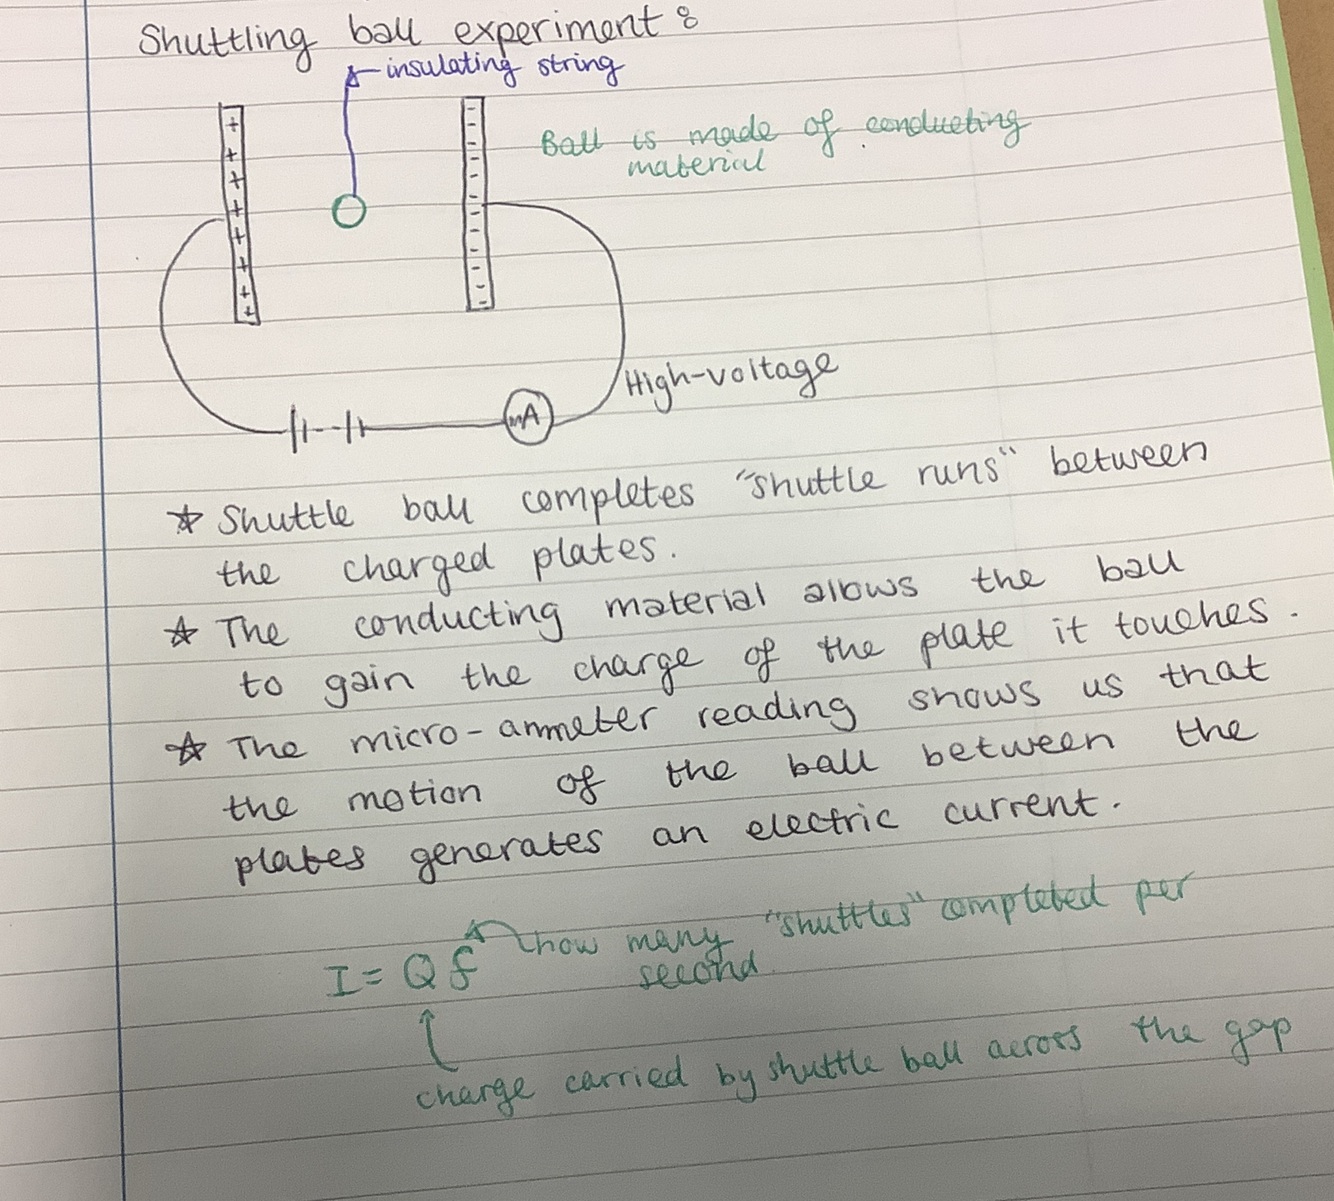 Shuttling ball experiment:
insulating string
Ball is made of conducting
material
+ + + + + + + +
- - - - - - - - - - -
High-voltage
mA
☆ Shuttle ball completes "shuttle runs" between
the charged plates.
☆ The conducting material allows the ball
to gain the charge of the plate it touches.
☆ The micro-ammeter reading shows us that
the motion of the ball between the
plates generates an electric current.
how many "shuttles" completed per
second.
I = Qf
charge carried by shuttle ball across the gap